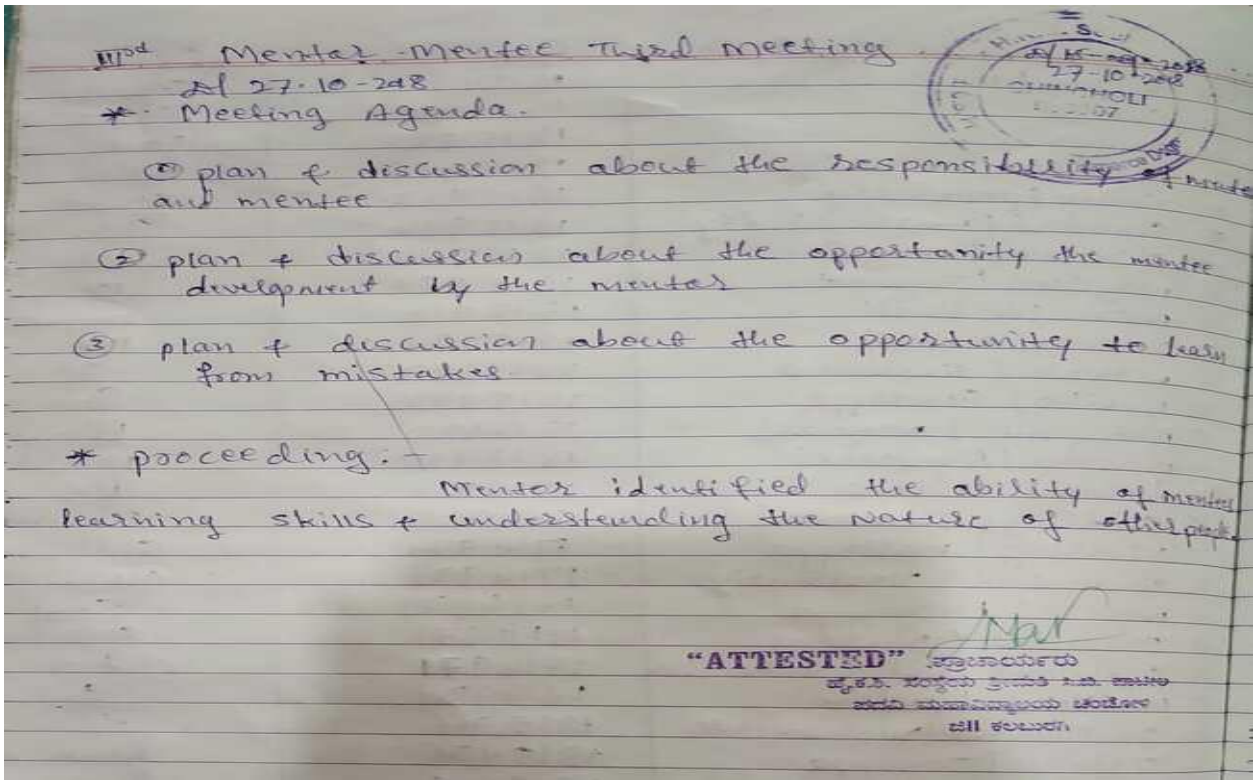 IIIrd Mentor-Mentee Third Meeting
27-10-2018
* Meeting Agenda.
① plan & discussion about the responsibility of
and mentee
② plan & discussion about the opportunity the mentee
development by the mentor
③ plan & discussion about the opportunity to learn
from mistakes
* proceeding:-
Mentor identified the ability of mentee
learning skills & understanding the Nature of other
27-10-2018
"ATTESTED" ಪ್ರಾಚಾರ್ಯರು
ಹೈ.ಕ.ಶಿ. ಸಂಸ್ಥೆಯ ಶ್ರೀಮತಿ ಸಿ.ಬಿ. ಪಾಟೀಲ
ಪದವಿ ಮಹಾವಿದ್ಯಾಲಯ ಚಿಂಚೋಳಿ
ಜಿ|| ಕಲಬುರಗಿ